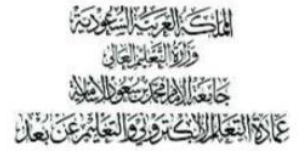 المملكة العربية السعودية
وزارة التعليم العالي
جامعة الإمام محمد بن سعود الإسلامية
عمادة التعلم الإلكتروني والتعليم عن بعد